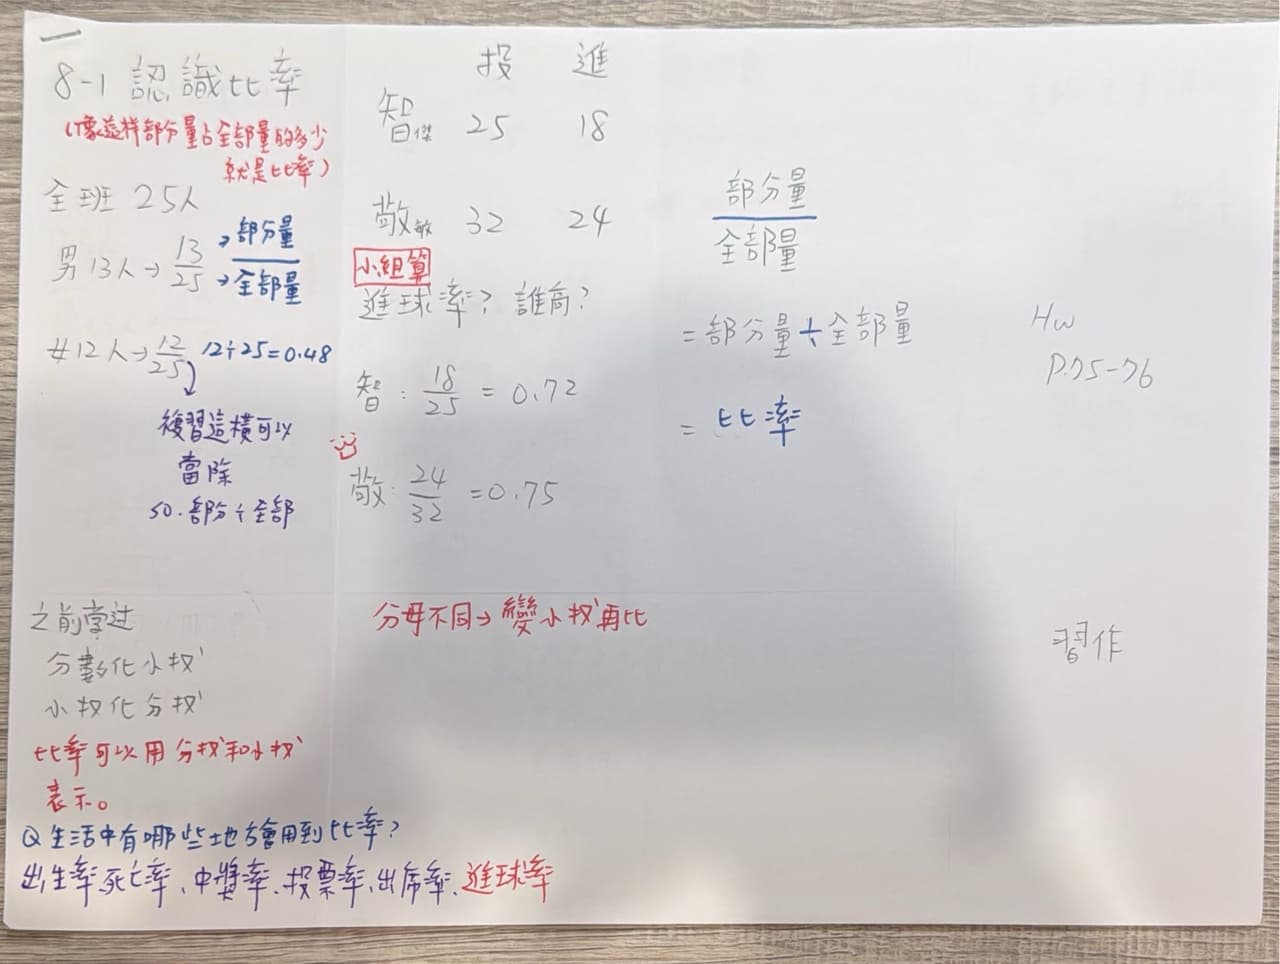 一
8-1 認識比率
(像這样部分量占全部量的多少
就是比率)
全班 25人
男13人→ 13/25 →部分量
→全部量
女12人→ 12/25 12÷25=0.48
複習這橫可以
當除
so.部分÷全部
之前学过
分數化小扠
小扠化分扠
比率可以用分扠和小扠
表示。
Q生活中有哪些地方會用到比率?
出生率、死亡率、中獎率、投票率、出席率、進球率
投 進
智傑 25 18
敬敏 32 24
小組算
進球率?誰高?
智: 18/25 = 0.72
敬: 24/32 =0.75
分母不同→變小扠再比
部分量
全部量
=部分量÷全部量
=比率
Hw
P.75-76
習作